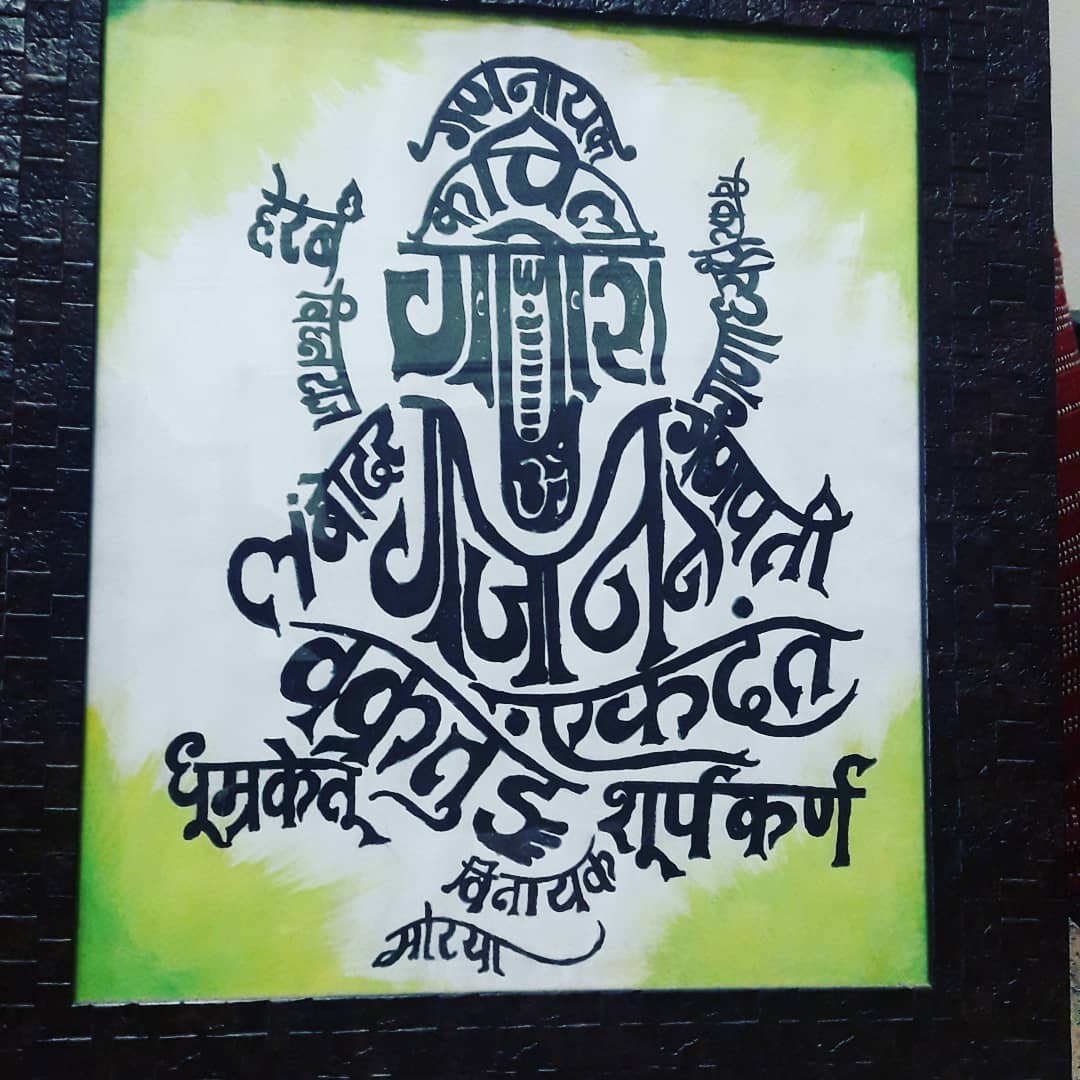 गणनायक
कपिल
गणेश
हेरंब
विघ्नराज
लंबोदर
गणपती
गजानन
वक्रतुंड
एकदंत
धूम्रकेतू
शूर्पकर्ण
विनायक
मोरया